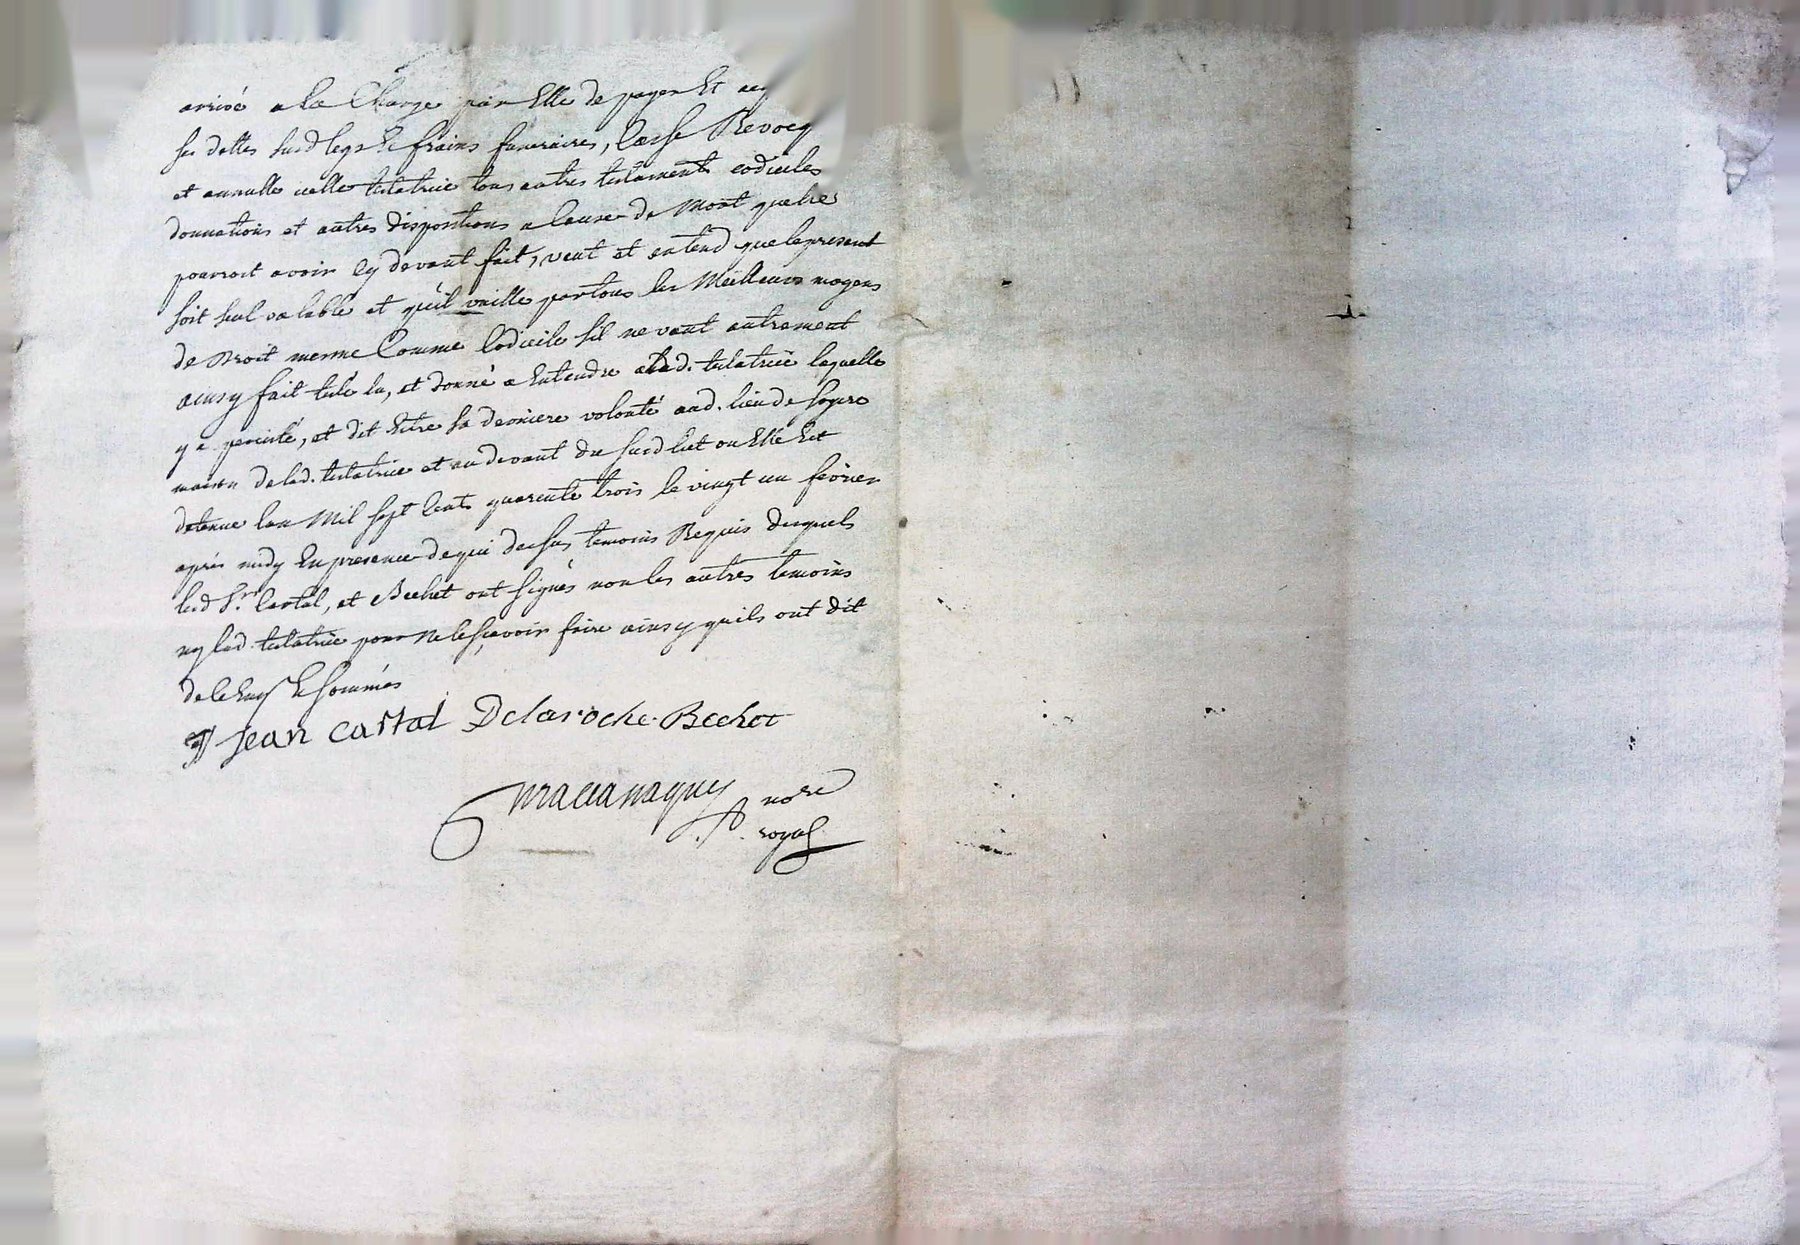 arrivé a la Charge par Elle de payer Et
ses dettes susd legs Et frains funeraires, Casse Revocq
et annulle icelle testatrice tous autres testaments codiciles
donnations et autres dispositions a cause de Mort quelle
pourroit avoir Cy devant fait, veut et entend que le present
soit seul valable et qu'il vaille par tous les Meilleurs moyens
de Droit mesme Comme Codicile sil ne vaut autrement
ainsy fait testé lu, et donné a Entendre a lad. testatrice laquelle
y a persisté, et dit Estre sa derniere volonté aud. lieu de
maison de lad. testatrice et au devant du susd lit ou Elle Est
detenue lan Mil sept Cents quarente trois le vingt un fevrier
aprés midy En presence de qui dessus temoins Requis desquels
led Sr. Castal, et Bechet ont signés non les autres témoins
ny lad. testatrice pour ne le sçavoir faire ainsy quils ont dit
de ce Enquis Et sommés
Jean castal Delaroche. Bechet
nore
royal